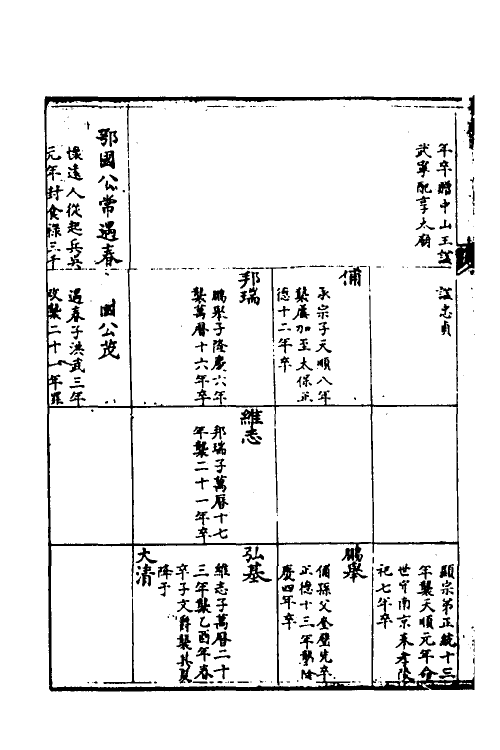 年卒贈中山王諡
武寧配享太廟
鄂國公常遇春
懷遠人從起兵吳
元年封食祿三千
諡忠貞
俌
承宗子天順八年
襲屢加至太保正
德十二年卒
邦瑞
鵬舉子隆慶六年
襲萬曆十六年卒
國公茂
遇春子洪武三年
改襲二十一年罪
維志
邦瑞子萬曆十七
年襲二十一年卒
顯宗弟正統十三
年襲天順元年命
世守南京奉孝陵
祀七年卒
鵬舉
俌孫父奎璧先卒
正德十三年襲隆
慶四年卒
弘基
維志子萬曆二十
三年襲乙酉年春
卒子文爵襲其夏
降于
大清